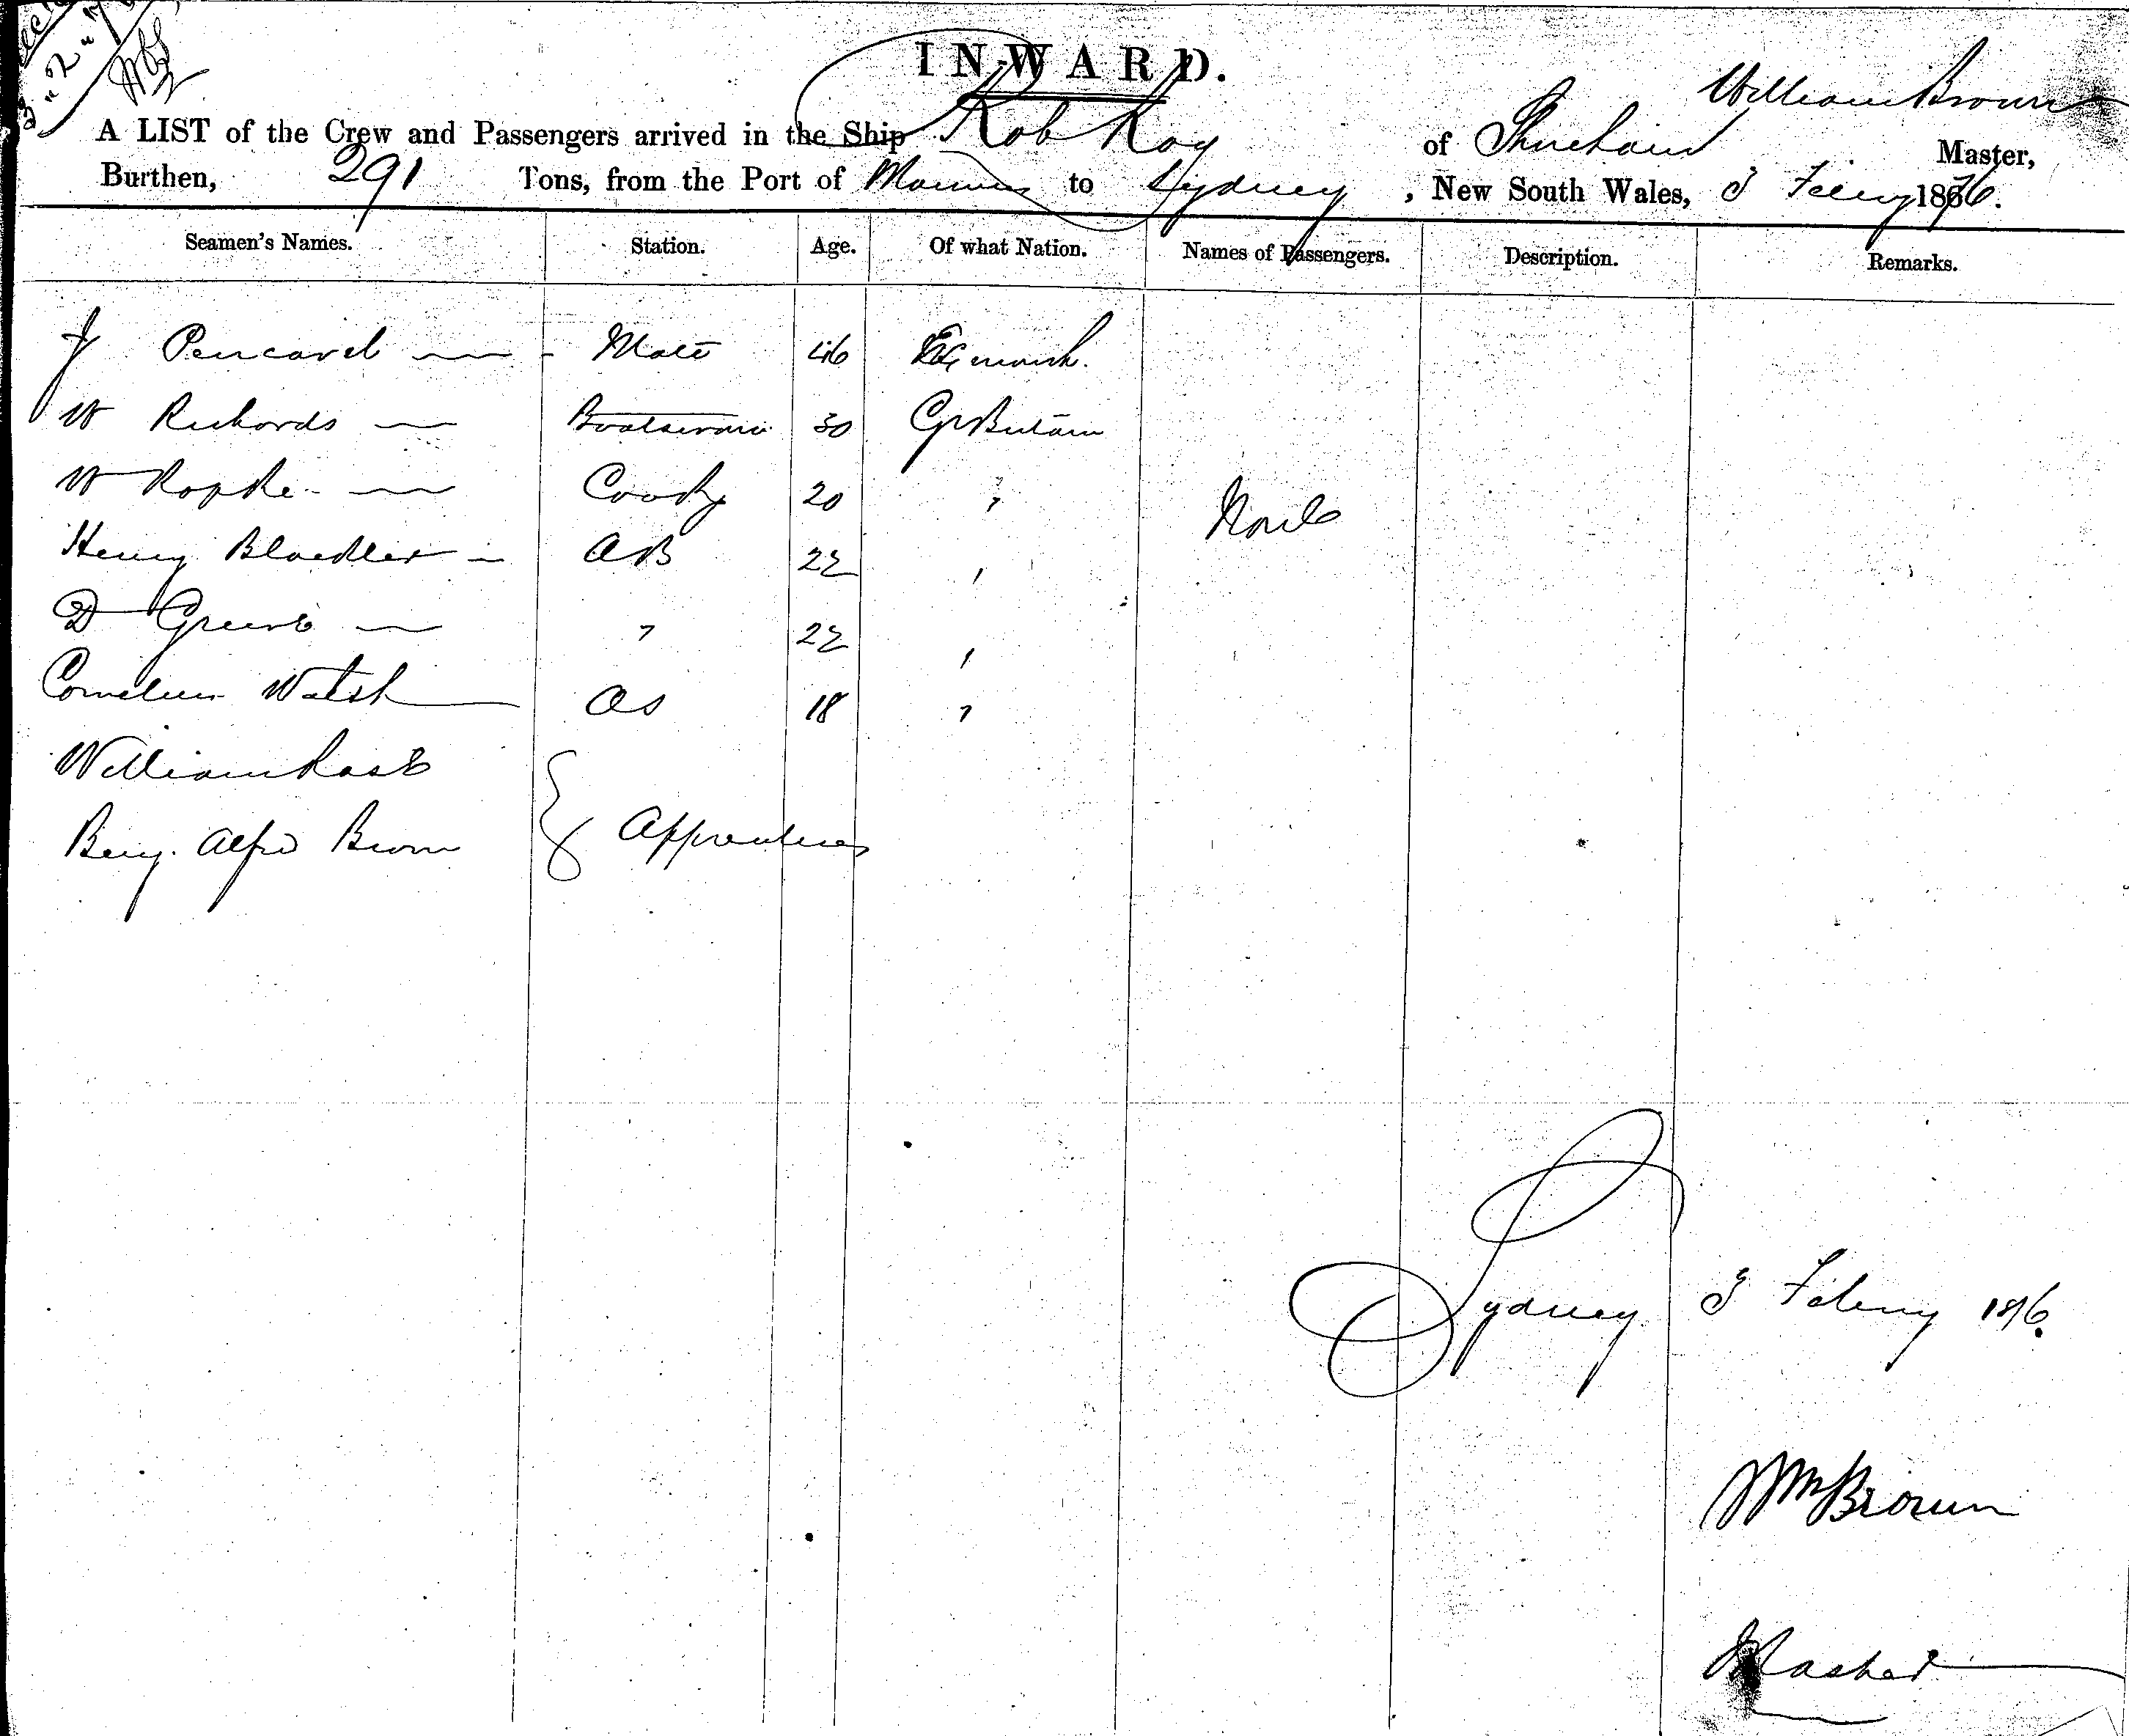 INWARD.
William Brown
A LIST of the Crew and Passengers arrived in the Ship Rob Roy of Master,
Burthen, 291 Tons, from the Port of to Sydney, New South Wales, 3 1876.
Seamen's Names. Station. Age. Of what Nation. Names of Passengers. Description. Remarks.
J Pencavel Mate 46
W Richards Boatswain 30 Gt Britain
W Cook 20 "
None
Henry AB 22 "
D Greene " 22 "
Cornelius Walsh OS 18 "
William
Benj. Alfd Brown
Apprentices
Sydney 3 1876.
Wm Brown
Master